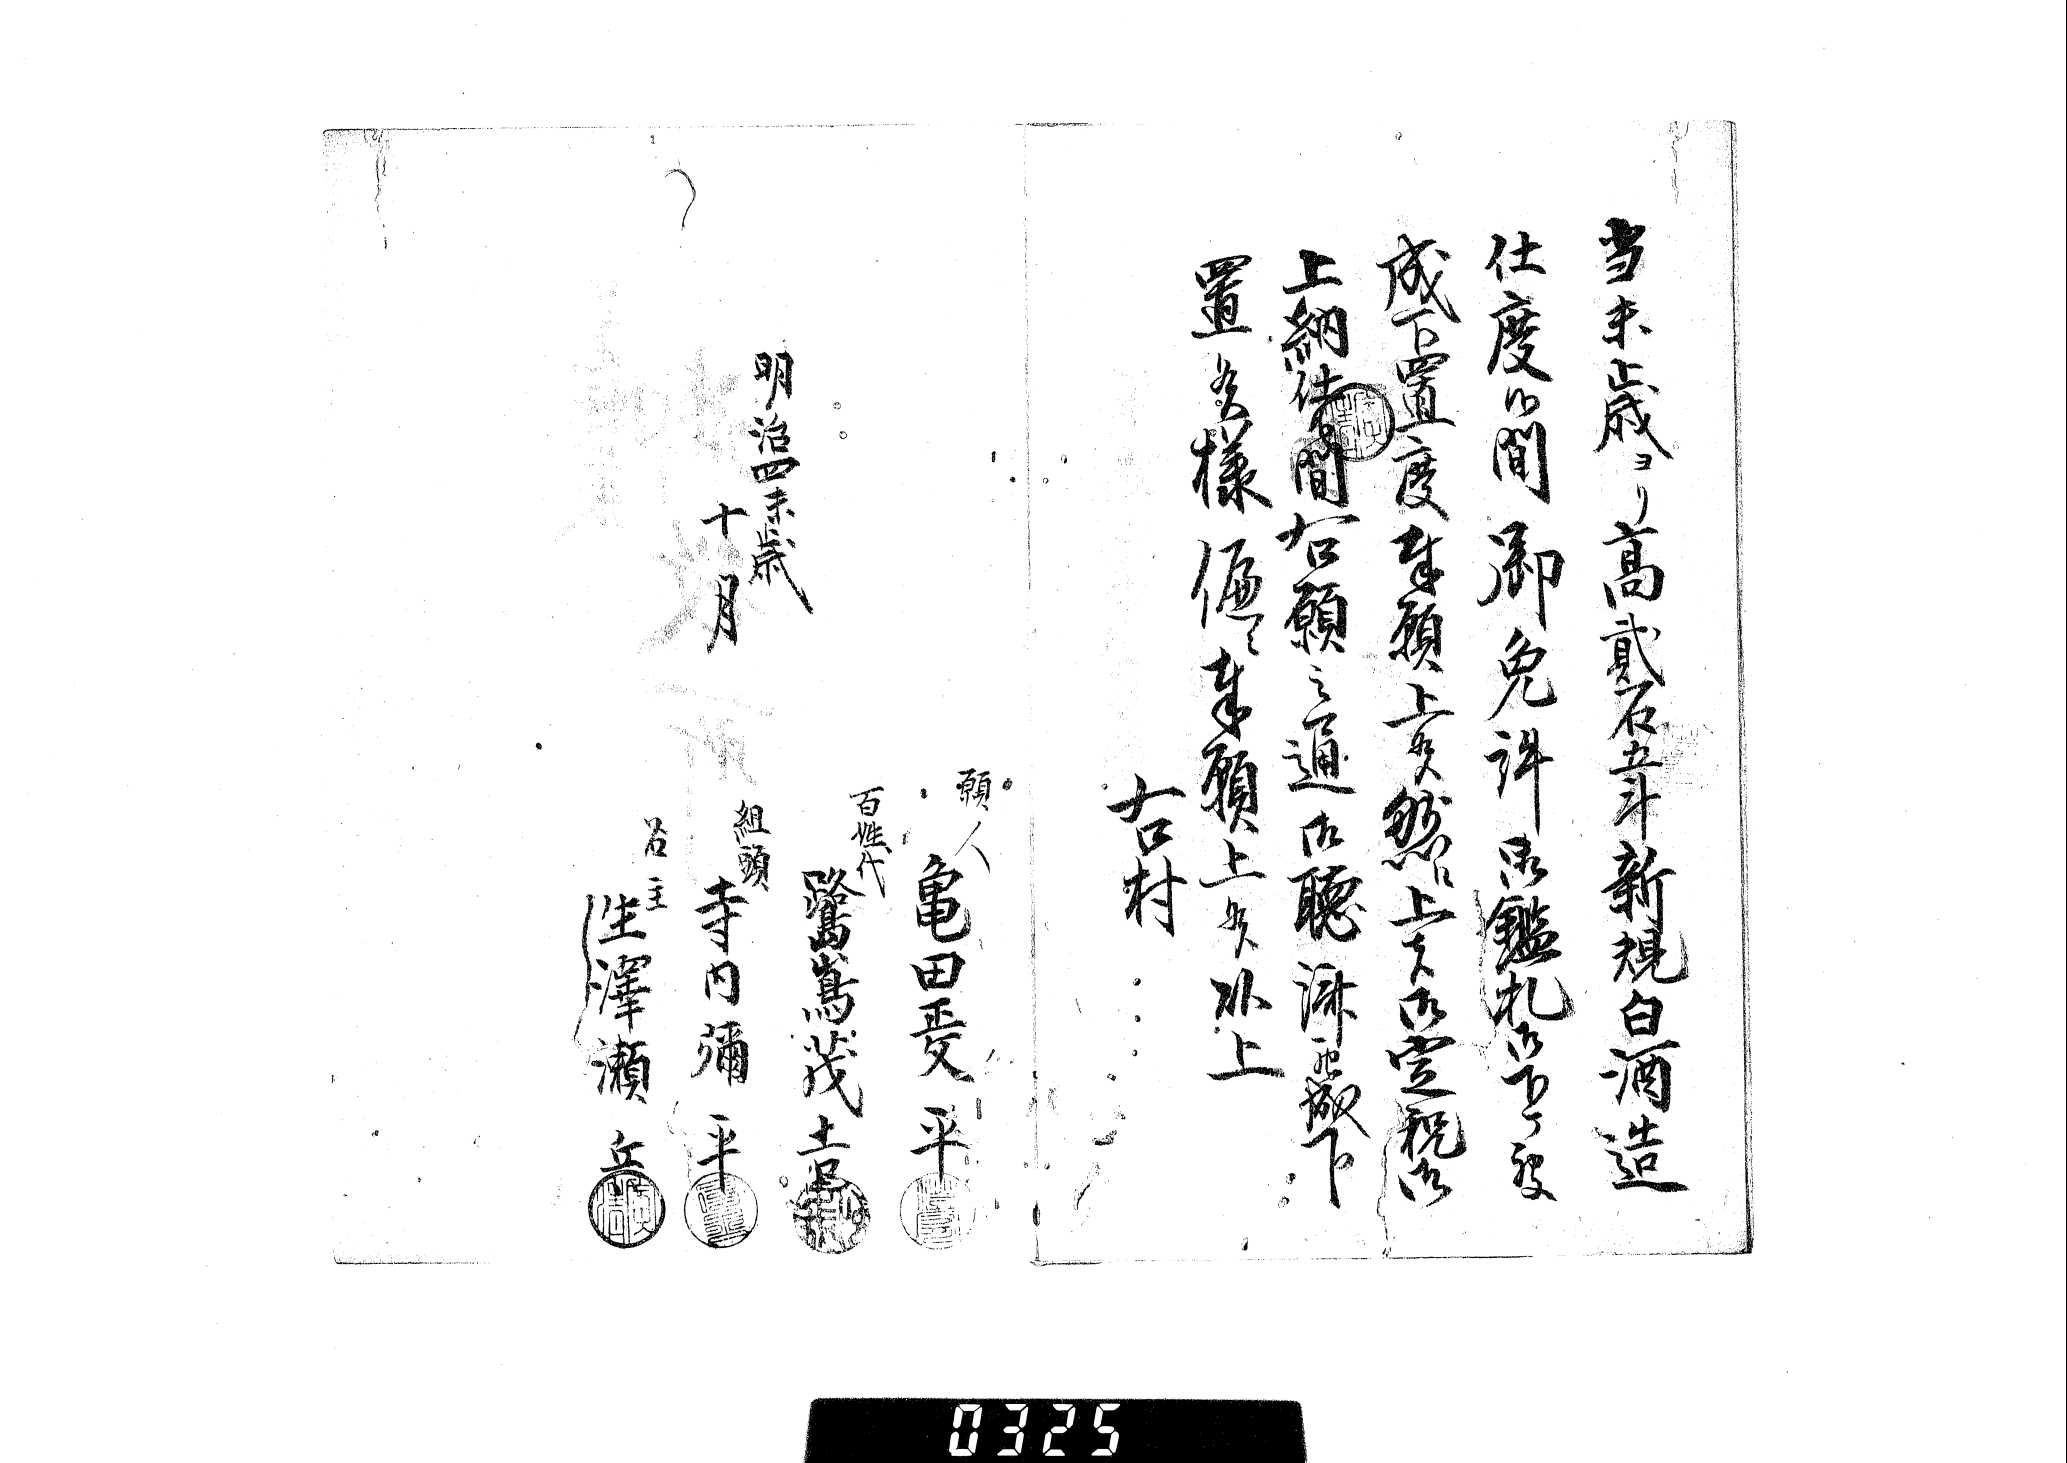 当未歳ヨリ高貳石五斗新規白酒造
仕度候間御免許御鑑札御下ケ被
成下置度奉願上候然ル上者御定税御
上納仕候間右願之通御聴済被成下
置候様偏ニ奉願上候以上
右村
願人
亀田愛平
百姓代
鷺嶌茂吉
組頭
寺内彌平
名主
生澤瀬兵
明治四未歳
十月
0325